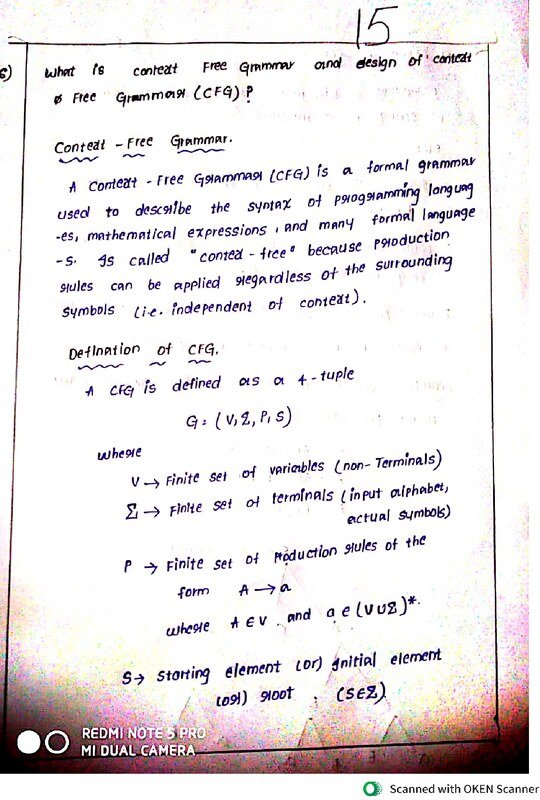 15
5) What is context Free Grammar and design of context
Free Grammar (CFG)?
Context - Free Grammar.
A Context - Free Grammar (CFG) is a formal grammar
used to describe the syntax of programming languag
-es, mathematical expressions, and many formal language
-s. Is called "context-free" because production
rules can be applied regardless of the surrounding
symbols (i.e. independent of context).
Defination of CFG.
A CFG is defined as a 4-tuple
G = (V, Σ, P, S)
where
V → Finite set of variables (non-Terminals)
Σ → Finite set of terminals (input alphabet,
actual symbols)
P → Finite set of Production rules of the
form A → a
where A ∈ V, and a ∈ (V ∪ Σ)*.
S → Starting element (or) Initial element
(or) root. (S ∈ Σ)
REDMI NOTE 5 PRO
MI DUAL CAMERA
Scanned with OKEN Scanner